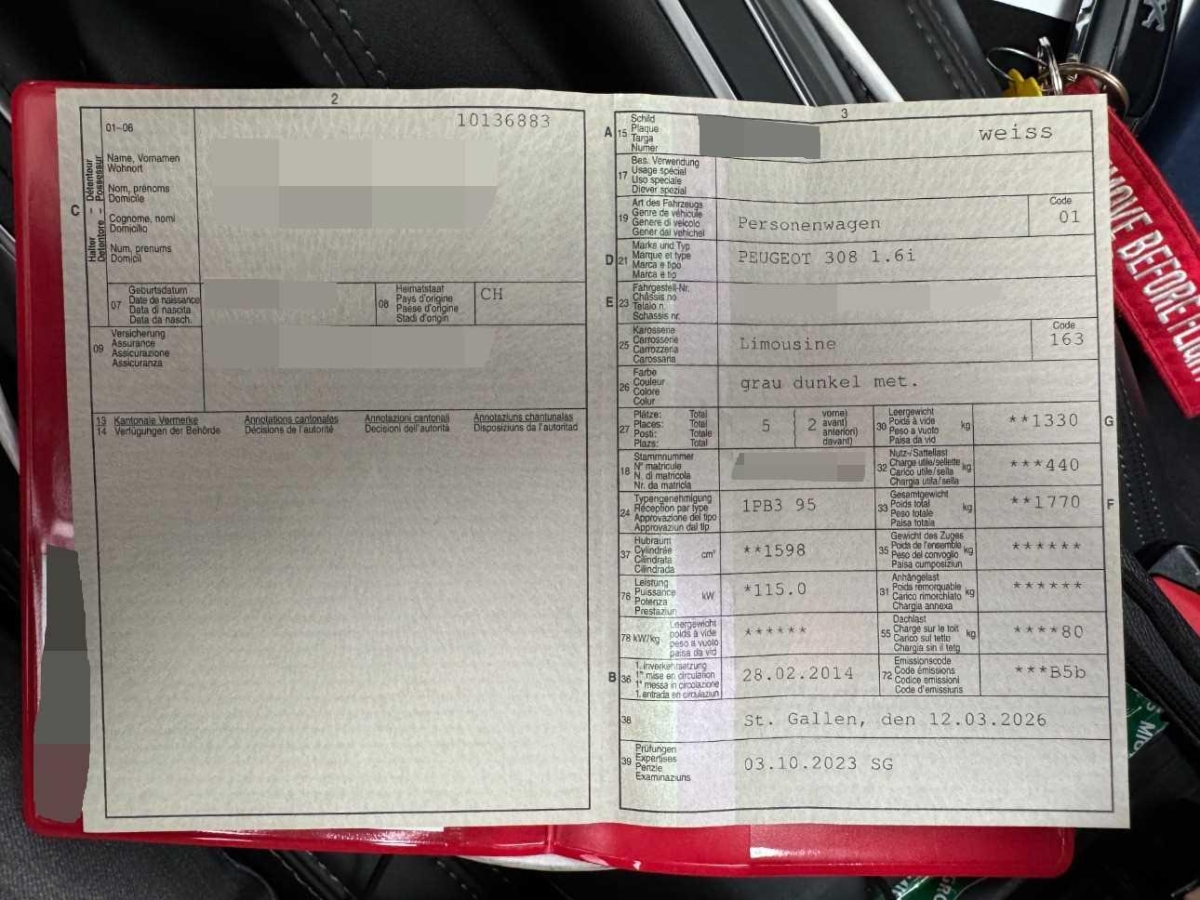 2
10136883
01–06
C
Halter – Détenteur
Detentore – Possessur
Name, Vornamen
Wohnort
Nom, prénoms
Domicile
Cognome, nomi
Domicilio
Num, prenums
Domicil
07
Geburtsdatum
Date de naissance
Data di nascita
Data da nasch.
08
Heimatstaat
Pays d'origine
Paese d'origine
Stadi d'origin
CH
09
Versicherung
Assurance
Assicurazione
Assicuranza
13 Kantonale Vermerke Annotations cantonales Annotazioni cantonali Annotaziuns chantunalas
14 Verfügungen der Behörde Décisions de l'autorité Decisioni dell'autorità Disposiziuns da l'autoritad
3
A 15
Schild
Plaque
Targa
Numer
weiss
17
Bes. Verwendung
Usage spécial
Uso speciale
Diever spezial
19
Art des Fahrzeugs
Genre de véhicule
Genere di veicolo
Gener dal vehichel
Personenwagen
Code
01
D 21
Marke und Typ
Marque et type
Marca e tipo
Marca e tip
PEUGEOT 308 1.6i
E 23
Fahrgestell-Nr.
Châssis no
Telaio n.
Schassis nr.
25
Karosserie
Carrosserie
Carrozzeria
Carossaria
Limousine
Code
163
26
Farbe
Couleur
Colore
Colur
grau dunkel met.
27
Plätze: Total
Places: Total
Posti: Totale
Plazs: Total
5
2
vorne)
avant)
anteriori)
davant)
30
Leergewicht
Poids à vide
Peso a vuoto
Paisa da vid
kg
**1330
G
18
Stammnummer
N° matricule
N. di matricola
Nr. da matricla
32
Nutz-/Sattellast
Charge utile/sellette
Carico utile/sella
Chargia utila/sella
kg
***440
24
Typengenehmigung
Réception par type
Approvazione del tipo
Approvaziun dal tip
1PB3 95
33
Gesamtgewicht
Poids total
Peso totale
Paisa totala
kg
**1770
F
37
Hubraum
Cylindrée
Cilindrata
Cilindrada
cm³
**1598
35
Gewicht des Zuges
Poids de l'ensemble
Peso del convoglio
Paisa cumposiziun
kg
******
76
Leistung
Puissance
Potenza
Prestaziun
kW
*115.0
31
Anhängelast
Poids remorquable
Carico rimorchiato
Chargia annexa
kg
******
78 kW/kg
Leergewicht
poids à vide
peso a vuoto
paisa da vid
******
55
Dachlast
Charge sur le toit
Carico sul tetto
Chargia sin il tetg
kg
****80
B 36
1. Inverkehrsetzung
1re mise en circulation
1a messa in circolazione
1. entrada en circulaziun
28.02.2014
72
Emissionscode
Code émissions
Codice emissioni
Code d'emissiuns
***B5b
38
St. Gallen, den 12.03.2026
39
Prüfungen
Expertises
Perizie
Examinaziuns
03.10.2023 SG
MOVE BEFORE FLIGH